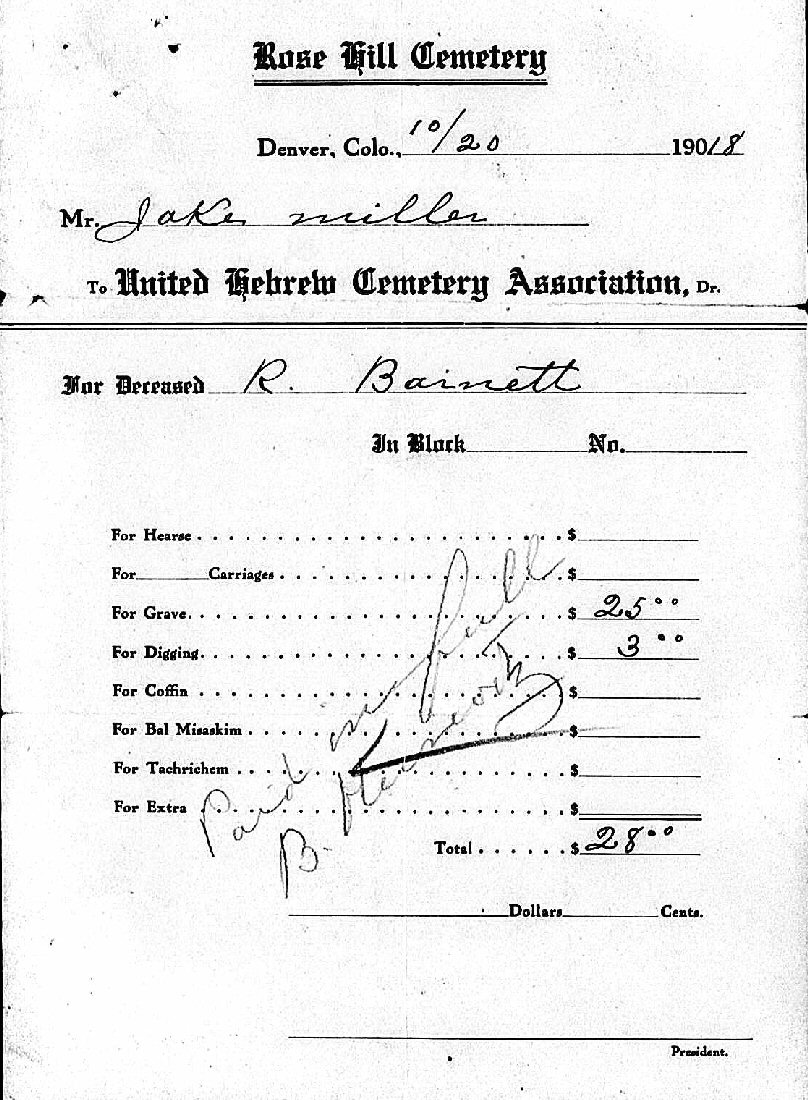 Rose Hill Cemetery
Denver, Colo., 10/20 19018
Mr. Jake Miller
To United Hebrew Cemetery Association, Dr.
For Deceased R. Barnett
In Block No.
For Hearse $
For Carriages $
For Grave $ 25 00
For Digging $ 3 00
For Coffin $
For Bal Misaskim $
For Tachrichem $
For Extra $
Total $ 28 00
Paid in full
B.
Dollars Cents.
President.